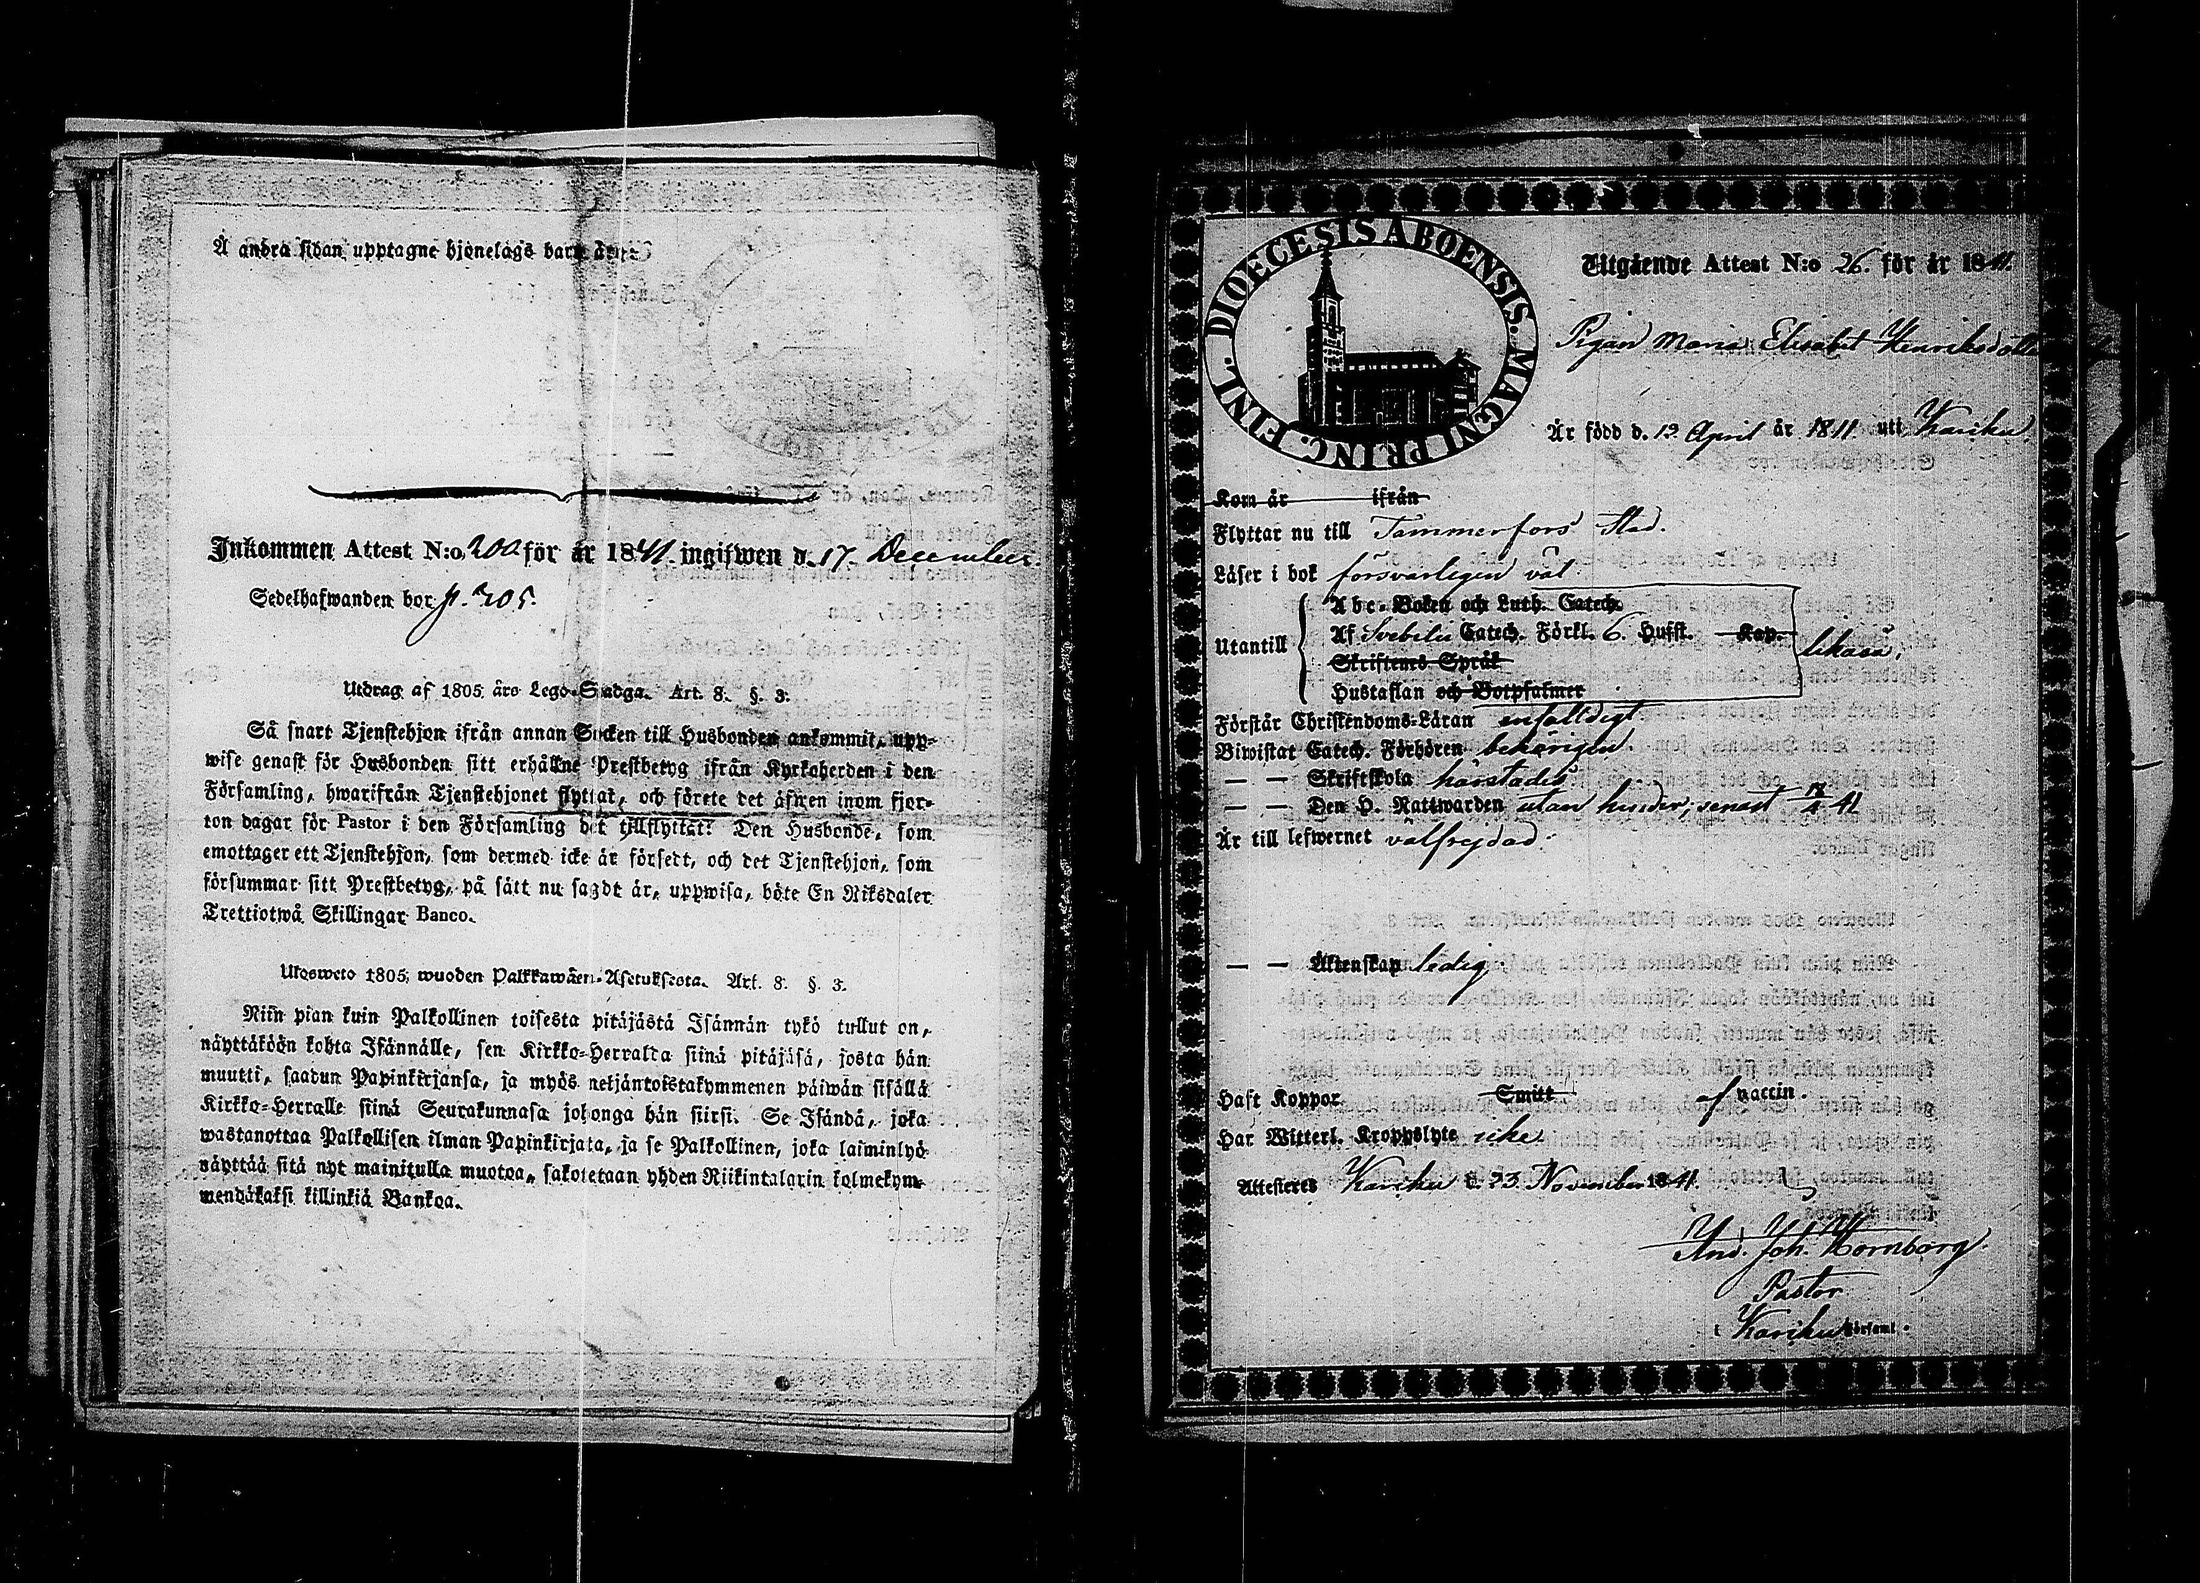 Å andra sidan upptagne hjonelags barn äro:
Inkommen Attest N:o 200 för år 1841. ingifwen d. 17. December.
Sedelhafwanden bor p. 205.
Utdrag af 1805 års Lego-Stadga. Art. 8. §. 3.
Så snart Tjenstehjon ifrån annan Socken till Husbonden ankommit, upp-
wise genast för Husbonden sitt erhållne Prestbetyg ifrån Kyrkoherden i den
Församling, hwarifrån Tjenstehjonet flyttat, och förete det äfwen inom fjor-
ton dagar för Pastor i den Församling det tillflyttat. Den Husbonde, som
emottager ett Tjenstehjon, som dermed icke är försedt, och det Tjenstehjon, som
försummar sitt Prestbetyg, på sätt nu sagdt är, uppwisa, böte En Riksdaler
Trettiotwå Skillingar Banco.
Ulosweto 1805 wuoden Palkkawäen-Asetuksesta. Art. 8. §. 3.
Niin pian kuin Palkollinen toisesta pitäjästä Isännän tykö tullut on,
näyttäköön kohta Isännälle, sen Kirkko-Herralta siinä pitäjäsä, josta hän
muutti, saadun Papinkirjansa, ja myös neljäntoistakymmenen päiwän sisällä
Kirkko-Herralle siinä Seurakunnasa johonga hän siirsi. Se Isändä, joka
wastanottaa Palkollisen ilman Papinkirjata, ja se Palkollinen, joka laiminlyö
näyttää sitä nyt mainitulla muotoa, sakotetaan yhden Riikintalarin kolmekym-
mendäkaksi killinkiä Bankoa.
DIOECESIS ABOENSIS. MAGNI PRINC. FINL.
Utgående Attest N:o 26. för år 1841.
Pigan Maria Elisabet Henriksdotter
Är född d. 13 April år 1811 uti Kariku.
Kom år ifrån
Flyttar nu till Tammerfors Stad.
Läser i bok försvarligen väl
Abc-Boken och Luth. Catech.
Utantill Af Svebilii Catech. Förkl. 6. Hufst. Kap. likaså,
Skriftenes Språk
Hustaflan och Botpsalmer
Förstår Christendoms-Läran enfaldigt
Biwistat Catech. Förhören behörigen.
— — Skriftskola härstädes
— — Den H. Nattwarden utan hinder, senast 41
Är till lefwernet välfrejdad.
— — Äktenskap ledig
Haft Koppor Smitt af vaccin.
Har Witterl. Kroppslyte icke
Attesteres Kariku d. 23. November 1841.
And. Joh. Hornborg.
Pastor
i Kariku Församl.